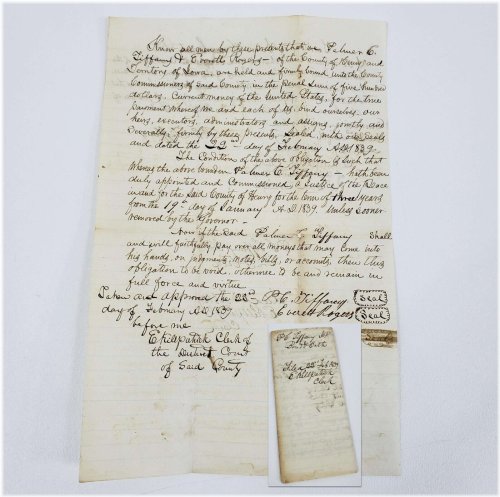 Know all men by these presents that we Palmer C.
Tiffany & Everett Rogers - of the County of Henry and
Territory of Iowa, are held and firmly bound unto the County
Commissioners of said County in the penal Sum of five hundred
dollars, Current money of the United States, for the true
payment whereof we and each of us bind ourselves our
heirs, executors, administrators and assigns, jointly and
severally firmly by these presents, Sealed, with our Seals
and dated the 22nd day of February AD 1839.
The Condition of the above obligation is such that
Whereas the above bounden Palmer C. Tiffany - hath been
duly appointed and Commissioned, a Justice of the Peace
in and for the said County of Henry for the term of three years
from the 19th day of January A.D. 1839. Unless sooner
removed by the Governor -
Now if the said Palmer C. Tiffany Shall
and will faithfully pay over all moneys that may come into
his hands, on judgments, notes, bills, or accounts, then this
obligation to be void, otherwise to be and remain in
full force and virtue
Taken and approved the 22nd P. C. Tiffany Seal
day of February AD 1839 Everett Rogers Seal
before me
E Kilpatrick Clerk of
the District Court
of Said County
P. C. Tiffany
Filed 22nd Feb 1839
E Kilpatrick
Clerk